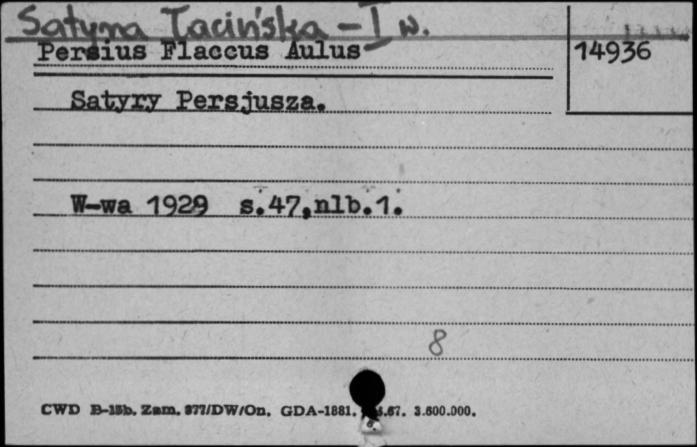 Satyra łacińska - I w.
Persius Flaccus Aulus
14936
Satyry Persjusza.
W-wa 1929 s.47,nlb.1.
8
CWD B-15b. Zam. 877/DW/On. GDA-1881. .67. 3.600.000.